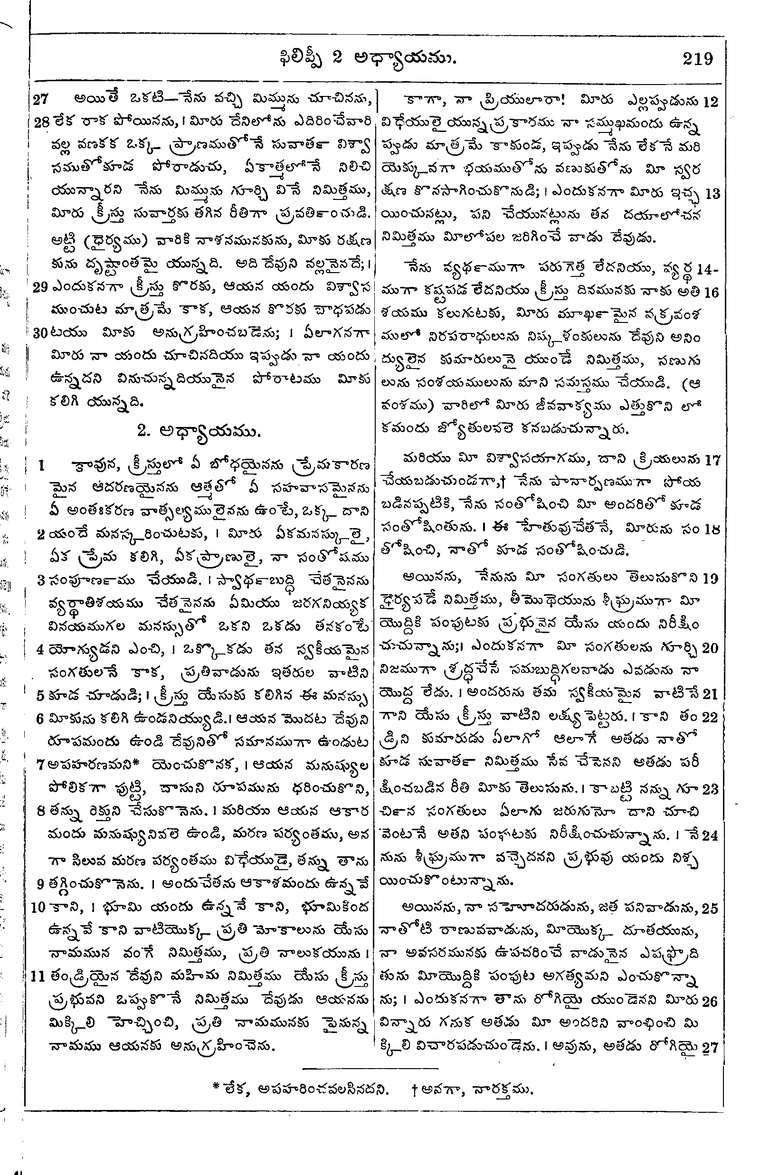 ఫిలిప్పీ 2 అధ్యాయము. 219
27 అయితే ఒకటి—నేను వచ్చి మిమ్మును చూచినను,
28 లేక రాక పోయినను, । మీరు దేనిలోను ఎదిరించేవారి
వల్ల వణకక ఒక్క ప్రాణముతోనే సువార్త విశ్వా
సముతోకూడ పోరాడుచు, ఏకాత్మలోనే నిలిచి
యున్నారని నేను మిమ్మును గూర్చి వినే నిమిత్తము,
మీరు క్రీస్తు సువార్తకు తగిన రీతిగా ప్రవర్తించుడి.
అట్టి (ధైర్యము) వారికి నాశనమునకును, మీకు రక్షణ
కును దృష్టాంతమై యున్నది. అది దేవుని వల్లనైనదే; ।
29 ఎందుకనగా క్రీస్తు కొరకు, ఆయన యందు విశ్వాస
ముంచుట మాత్రమే కాక, ఆయన కొరకు బాధపడు
30 టయు మీకు అనుగ్రహించబడెను; । ఏలాగనగా
మీరు నా యందు చూచినదియు ఇప్పుడు నా యందు
ఉన్నదని వినుచున్నదియునైన పోరాటము మీకు
కలిగి యున్నది.
2. అధ్యాయము.
1 కావున, క్రీస్తులో ఏ బోధయైనను ప్రేమకారణ
మైన ఆదరణయైనను ఆత్మతో ఏ సహవాసమైనను
ఏ అంతఃకరణ వాత్సల్యములైనను ఉంటే, ఒక్క దాని
2 యందే మనస్కరించుటకు, । మీరు ఏకమనస్కులై,
ఏక ప్రేమ కలిగి, ఏకప్రాణులై, నా సంతోషము
3 సంపూర్ణము చేయుడి. । స్వార్థబుద్ధి చేతనైనను
వ్యర్థాతిశయము చేతనైనను ఏమియు జరగనియ్యక
వినయముగల మనస్సుతో ఒకని ఒకడు తనకంటే
4 యోగ్యుడని ఎంచి, । ఒక్కొకడు తన స్వకీయమైన
సంగతులనే కాక, ప్రతివాడును ఇతరుల వాటిని
5 కూడ చూడుడి; । క్రీస్తు యేసుకు కలిగిన ఈ మనస్సు
6 మీకును కలిగి ఉండనియ్యుడి. । ఆయన మొదట దేవుని
రూపమందు ఉండి దేవునితో సమానముగా ఉండుట
7 అపహరణమని* యెంచుకొనక, । ఆయన మనుష్యుల
పోలికగా పుట్టి, దాసుని రూపమును ధరించుకొని,
8 తన్ను రిక్తుని చేసుకొనెను. । మరియు ఆయన ఆకార
మందు మనుష్యునివలె ఉండి, మరణ పర్యంతము, అన
గా సిలువ మరణ పర్యంతము విధేయుడై, తన్ను తాను
9 తగ్గించుకొనెను. । అందుచేతను ఆకాశమందు ఉన్నవే
10 కాని, । భూమి యందు ఉన్నవే కాని, భూమికింద
ఉన్నవే కాని వాటియొక్క ప్రతి మోకాలును యేసు
నామమున వంగే నిమిత్తము, ప్రతి నాలుకయును ।
11 తండ్రియైన దేవుని మహిమ నిమిత్తము యేసు క్రీస్తు
ప్రభువని ఒప్పుకొనే నిమిత్తము దేవుడు ఆయనను
మిక్కిలి హెచ్చించి, ప్రతి నామమునకు పైనున్న
నామము ఆయనకు అనుగ్రహించెను.
కాగా, నా ప్రియులారా! మీరు ఎల్లప్పుడును 12
విధేయులై యున్న ప్రకారము నా సమ్ముఖమందు ఉన్న
ప్పుడు మాత్రమే కాకుండ, ఇప్పుడు నేను లేకనే మరి
యెక్కువగా భయముతోను వణుకుతోను మీ స్వర
క్షణ కొనసాగించుకొనుడి; । ఎందుకనగా మీరు ఇచ్ఛ 13
యించునట్లు, పని చేయునట్లును తన దయాలోచన
నిమిత్తము మీలోపల జరిగించే వాడు దేవుడు.
నేను వ్యర్థముగా పరుగెత్త లేదనియు, వ్యర్థ 14-
ముగా కష్టపడ లేదనియు క్రీస్తు దినమునకు నాకు అతి 16
శయము కలుగుటకు, మీరు మూర్ఖమైన వక్రవంశ
ములో నిరపరాధులును నిష్కళంకులును దేవుని అనిం
ద్యులైన కుమారులునై యుండే నిమిత్తము, సణుగు
లును సంశయములును మాని సమస్తము చేయుడి. (ఆ
వంశము) వారిలో మీరు జీవవాక్యము ఎత్తుకొని లో
కమందు జ్యోతులవలె కనబడుచున్నారు.
మరియు మీ విశ్వాసయాగము, దాని క్రియలును 17
చేయబడుచుండగా,† నేను పానార్పణముగా పోయ
బడినప్పటికి, నేను సంతోషించి మీ అందరితో కూడ
సంతోషింతును. । ఈ హేతువుచేతనే, మీరును సం 18
తోషించి, నాతో కూడ సంతోషించుడి.
అయినను, నేనును మీ సంగతులు తెలుసుకొని 19
ధైర్యపడే నిమిత్తము, తీమొథెయును శీఘ్రముగా మీ
యొద్దికి పంపుటకు ప్రభువైన యేసు యందు నిరీక్షిం
చుచున్నాను; । ఎందుకనగా మీ సంగతులను గూర్చి 20
నిజముగా శ్రద్ధచేసే సమబుద్ధిగలనాడు ఎవడును నా
యొద్ద లేడు. । అందరును తమ స్వకీయమైన వాటినే 21
గాని యేసు క్రీస్తు వాటిని లక్ష్యపెట్టరు. । కాని తం 22
డ్రిని కుమారుడు ఏలాగో ఆలాగే అతడు నాతో
కూడ సువార్త నిమిత్తము సేవ చేసెనని అతడు పరీ
క్షించబడిన రీతి మీకు తెలుసును. । కాబట్టి నన్ను గూ 23
ర్చిన సంగతులు ఏలాగు జరుగునో దాని చూచి
వెంటనే అతని పంపుటకు నిరీక్షించుచున్నాను. । నే 24
నును శీఘ్రముగా వచ్చెదనని ప్రభువు యందు నిశ్చ
యించుకొంటున్నాను.
అయినను, నా సహోదరుడును, జత పనివాడును, 25
నాతోటి రాణువవాడును, మీయొక్క దూతయును,
నా అవసరమునకు ఉపచరించే వాడునైన ఎపఫ్రొది
తును మీయొద్దికి పంపుట అగత్యమని ఎంచుకొన్నా
ను; । ఎందుకనగా తాను రోగియై యుండెనని మీరు 26
విన్నారు గనుక అతడు మీ అందరిని వాంఛించి మి
క్కిలి విచారపడుచుండెను. । అవును, అతడు రోగియై 27
* లేక, అపహరించవలసినదని. † అనగా, నారక్తము.